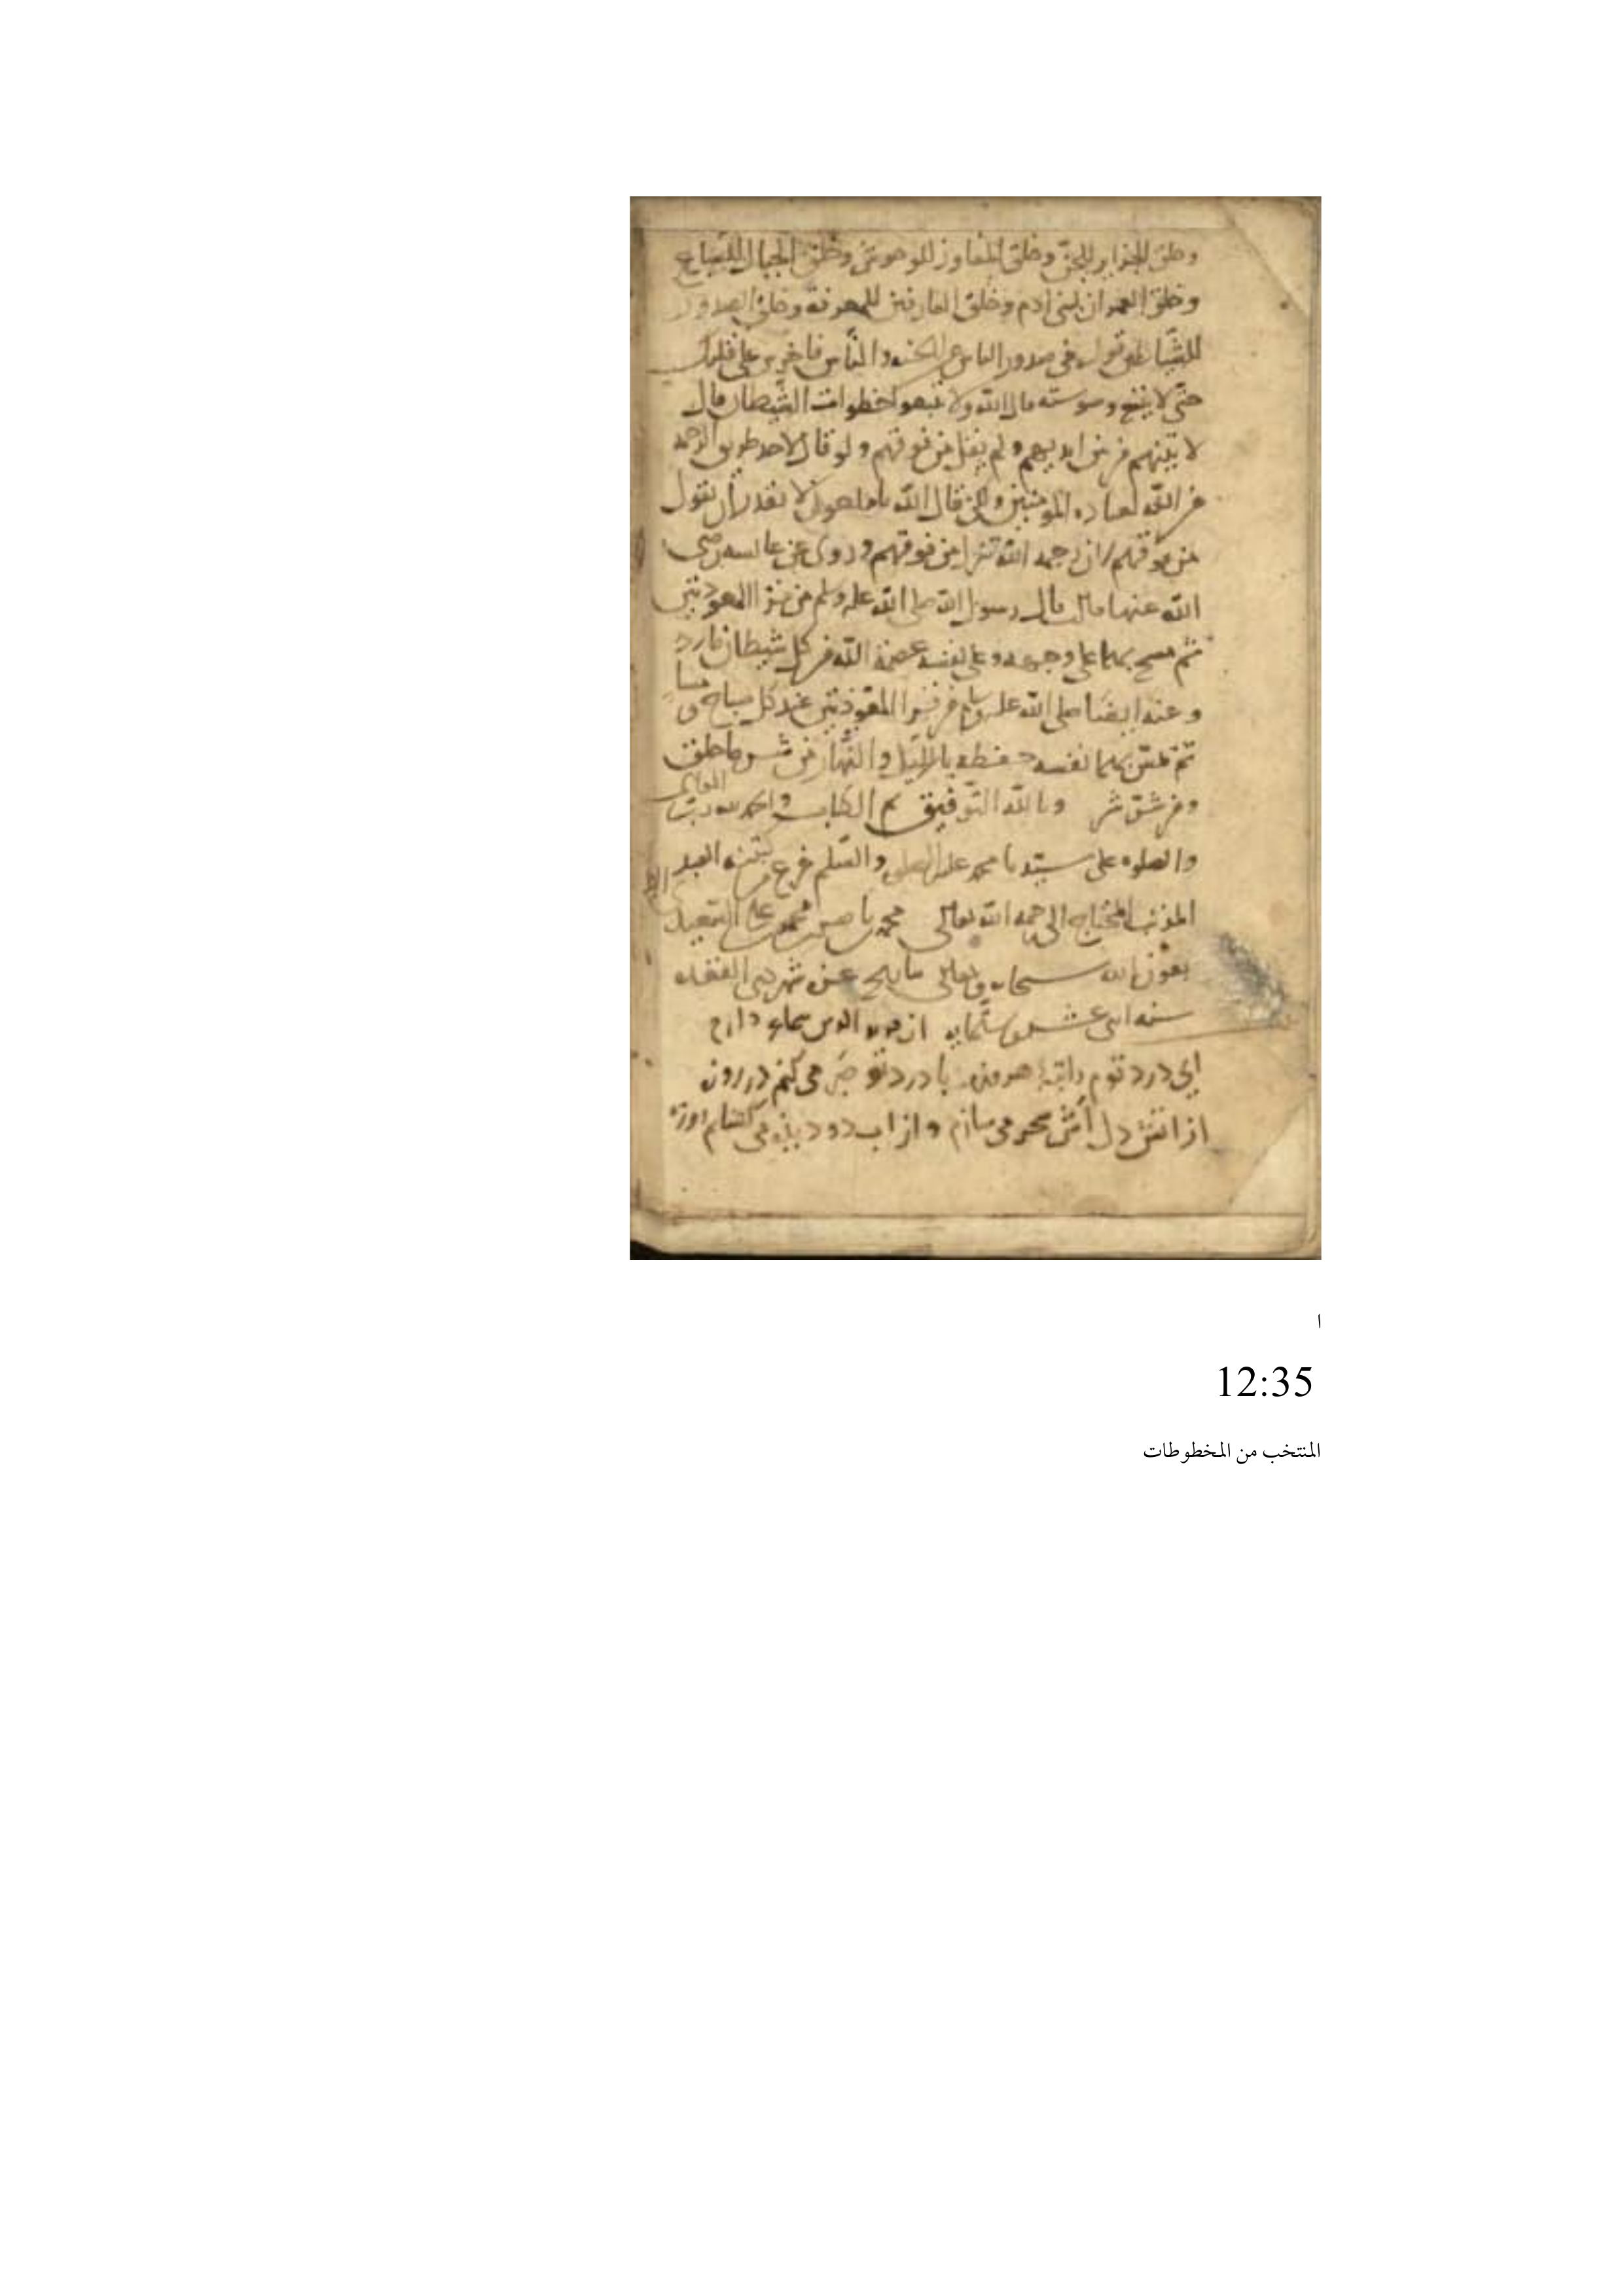 وخلق الجزاير للجن وخلق المفاوز للوحوش وخلق الجبال للسباع
وخلق العمران لبني ادم وخلق العارفين للمعرفة وخلق الصدور
في صدور الناس من الجنه والناس
حتى لا وسوسته قال الله ولا تتبعوا خطوات الشيطان قال
لاتينهم من بين ايديهم ولم يقل من فوقهم ولو قال لاحد طريق الرحمه
من الله لعباده المومنين قال الله يا ملعون لا تقدر ان تقول
من فوقهم لان رحمه الله تنزل من فوقهم وروى عن عايسه رضى
الله عنها قالت قال رسول الله صلى الله عليه وسلم من قرا المعوذتين
ثم مسح بهما على وجهه وعلى نفسه عصمه الله من كل شيطان مارد
وعنه ايضا صلى الله عليه وسلم من قرا المعوذتين عند كل صباح ومسا
ثم بهما نفسه حفظه بالليل والنهار من شر ما خلق
ومن شر وبالله التوفيق تم الكتاب والحمد لله رب العالمين
والصلوه على سيدنا محمد عليه الصلوه والسلم فرغ من كتبته العبد
المذنب المحتاج الى رحمه الله تعالى محمد بن محمد بن على
بعون الله سبحانه وتعالى عن شهر ذى القعده
سنه اثنى عشر وستمايه
اى درد توم هر روزه با درد تو مى كنم در روزه
از اتش دل مى سازم و از اب دو ديده مى كشايم روزه
ا
12:35
المنتخب من المخطوطات